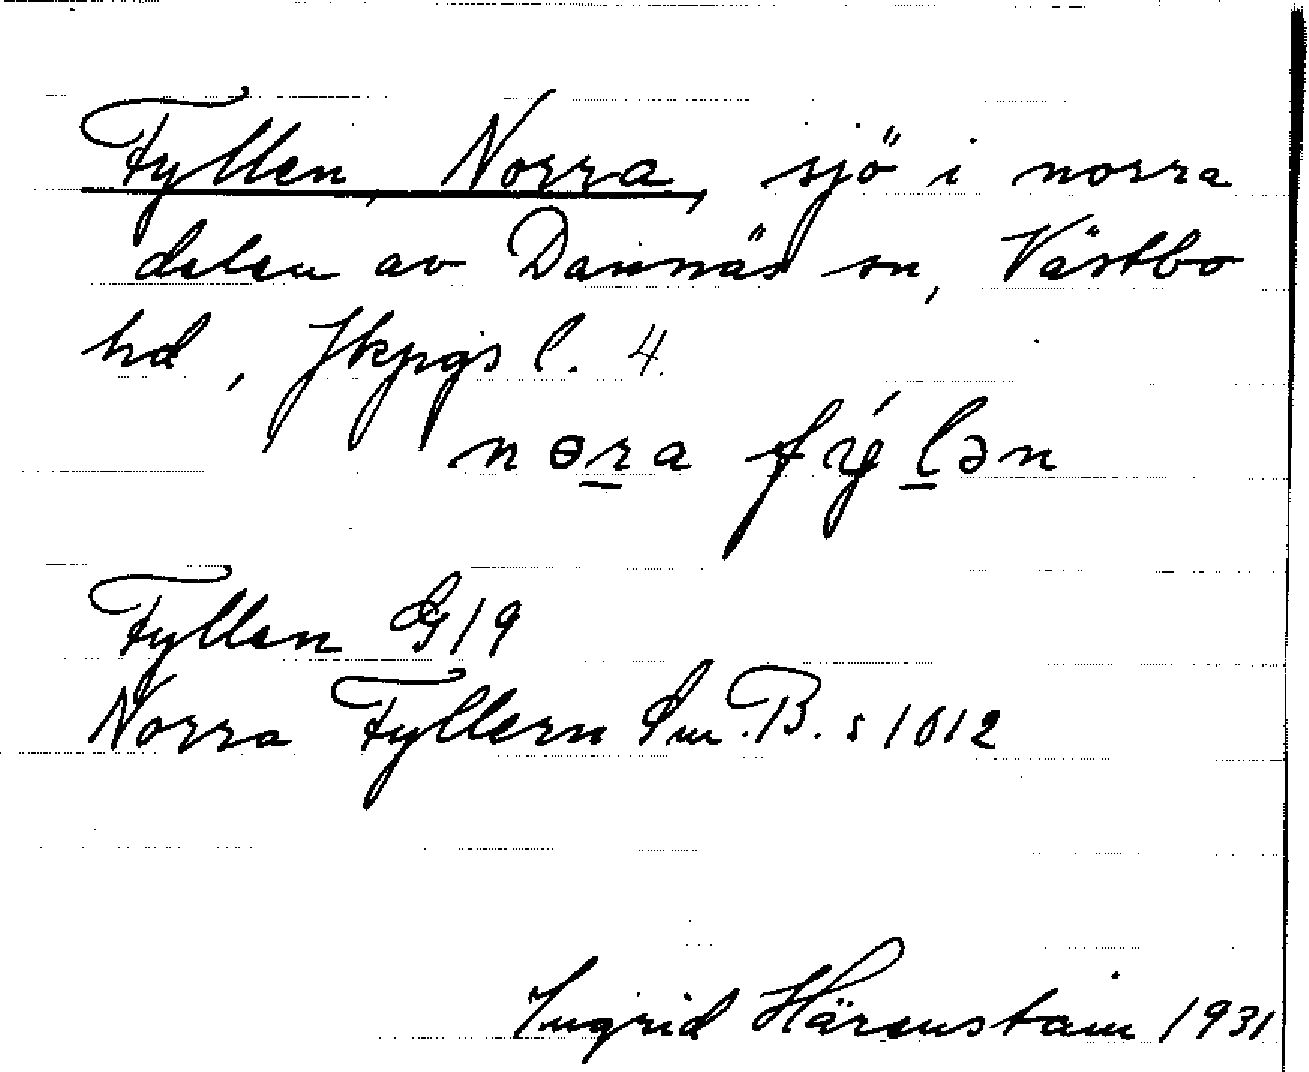 Fyllen, Norra, sjö i norra
delen av Dannäs sn, Västbo
hd, Jkpgs l. 4.
nɵra fýlən
Fyllen G 19
Norra Fyllern Sm. B. s 1012
Ingrid Härenstam 1931